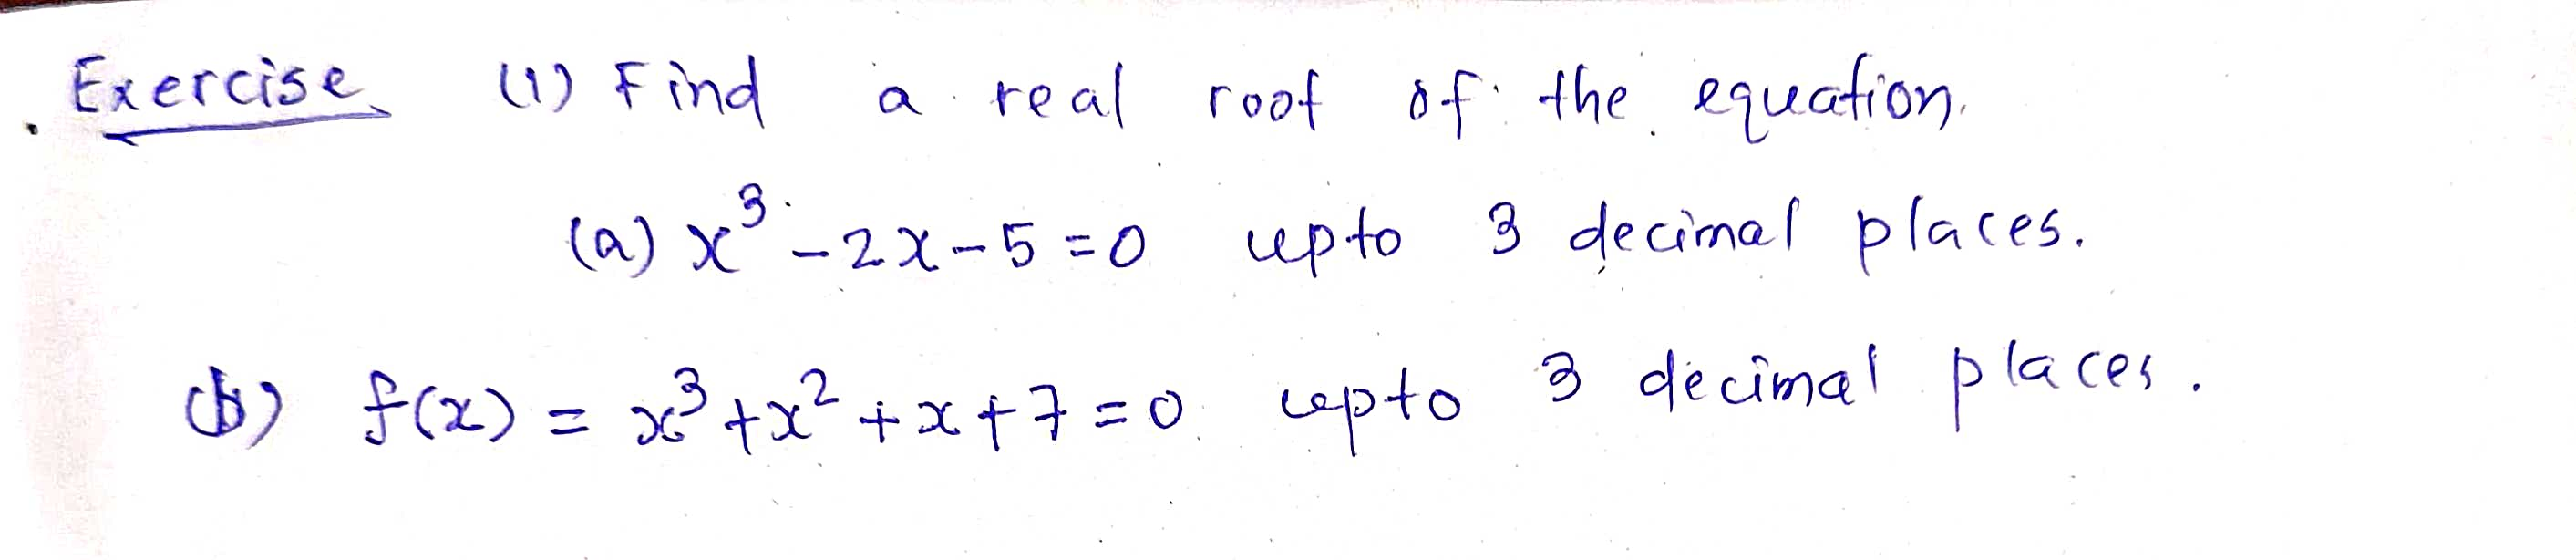 Exercise (1) Find a real root of the equation.
(a) x³ - 2x - 5 = 0 upto 3 decimal places.
(b) f(x) = x³ + x² + x + 7 = 0 upto 3 decimal places.